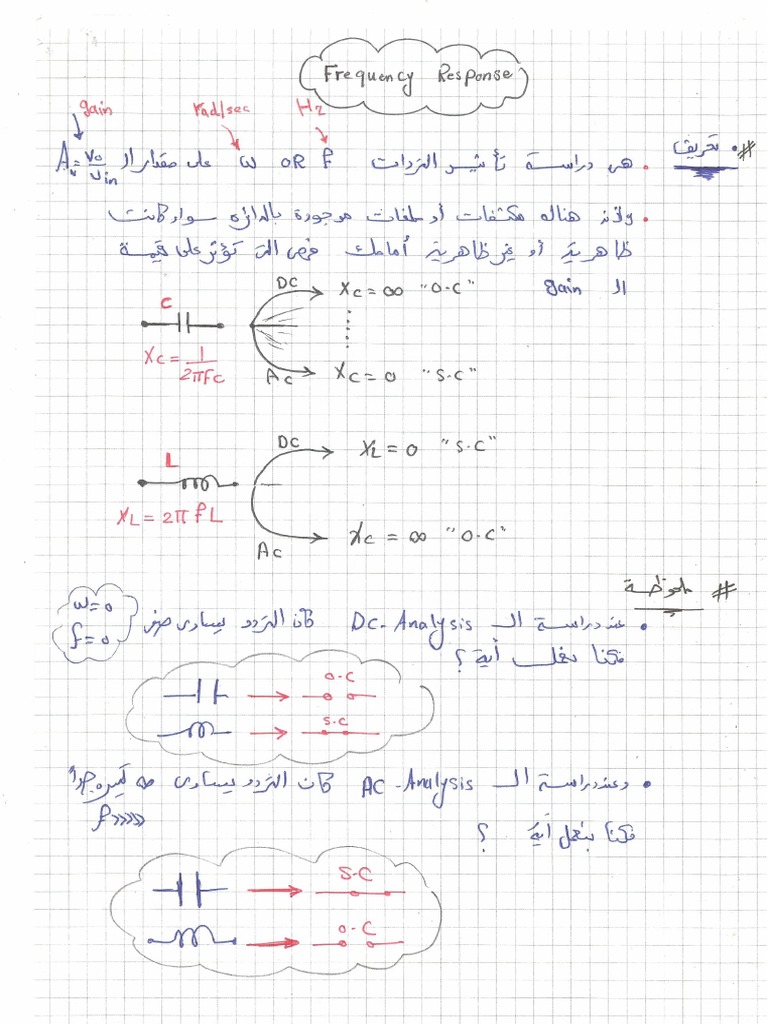 Frequency Response
gain
rad/sec
Hz
# • تعريف
• هى دراسة تأثير الترددات f OR ω على مقدار الـ Av = vo/vin
• ولأن هناك مكثفات أو ملفات موجودة بالدائره سواء كانت
ظاهرية أو غير ظاهرية أمامك فهى التى تؤثر على قيمة
الـ gain
DC
Xc = ∞ "O.C"
C
Xc = 1/2πFc
Ac
Xc = 0 "S.C"
DC
XL = 0 "S.C"
L
XL = 2π f L
Ac
Xc = ∞ "O.C"
# ملحوظة
• عند دراسة الـ DC-Analysis كان التردد يساوى صفر
ω=0
f=0
فكنا بنعمل أية ؟
O.C
S.C
• وعند دراسة الـ AC-Analysis كان التردد يساوى ∞ كبيره جداً
f>>>>>
فكنا بنعمل أية ؟
S.C
O.C